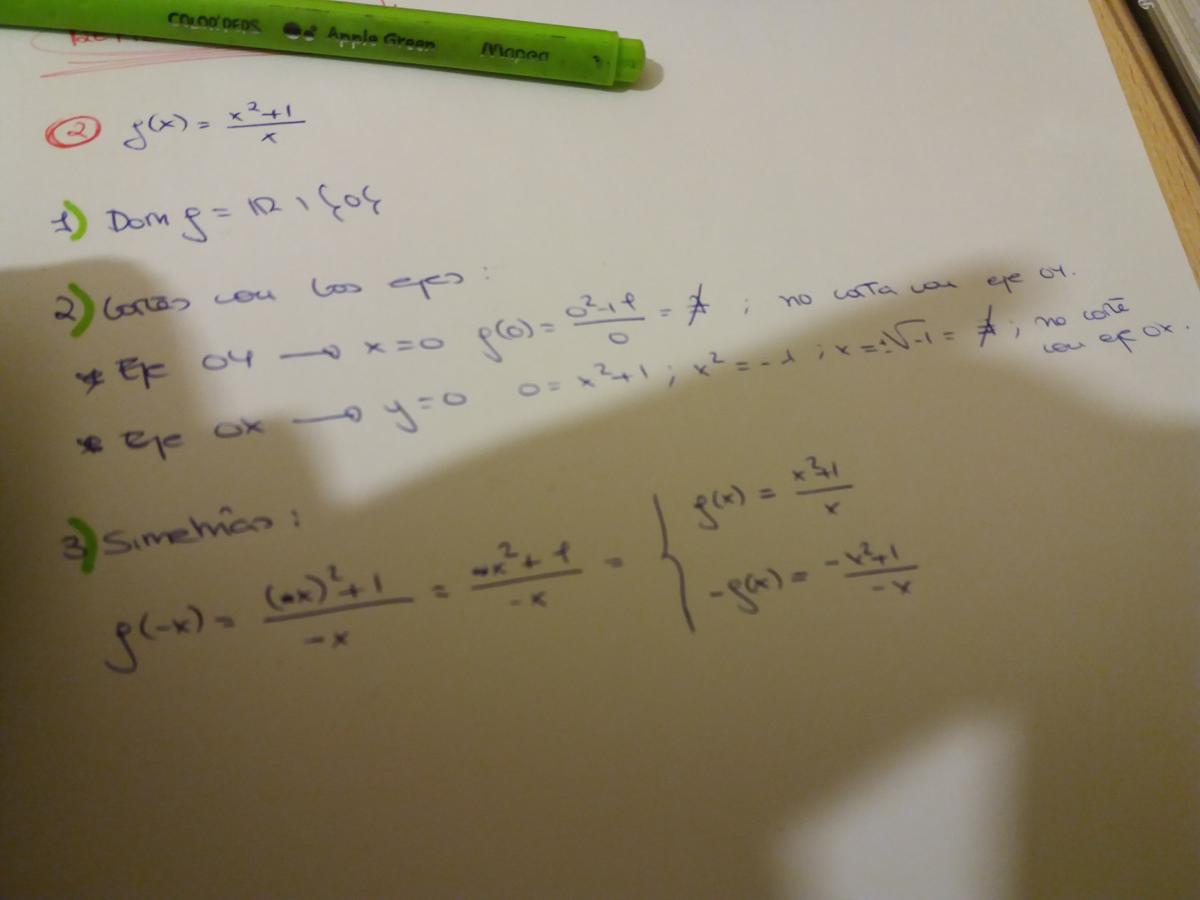 COLOR'PEPS Apple Green Maped
② f(x) = x²+1 / x
1) Dom f = ℝ \ {0}
2) Cortes con los ejes:
* Eje OY → x=0 f(0) = 0²+1 / 0 = ∄ ; no corta con eje OY.
* Eje OX → y=0 0 = x²+1 ; x² = -1 ; x = ±√-1 = ∄ ; no corta con eje OX.
3) Simetrías:
f(-x) = (-x)²+1 / -x = x²+1 / -x = { f(x) = x²+1 / x
-f(x) = -x²+1 / -x